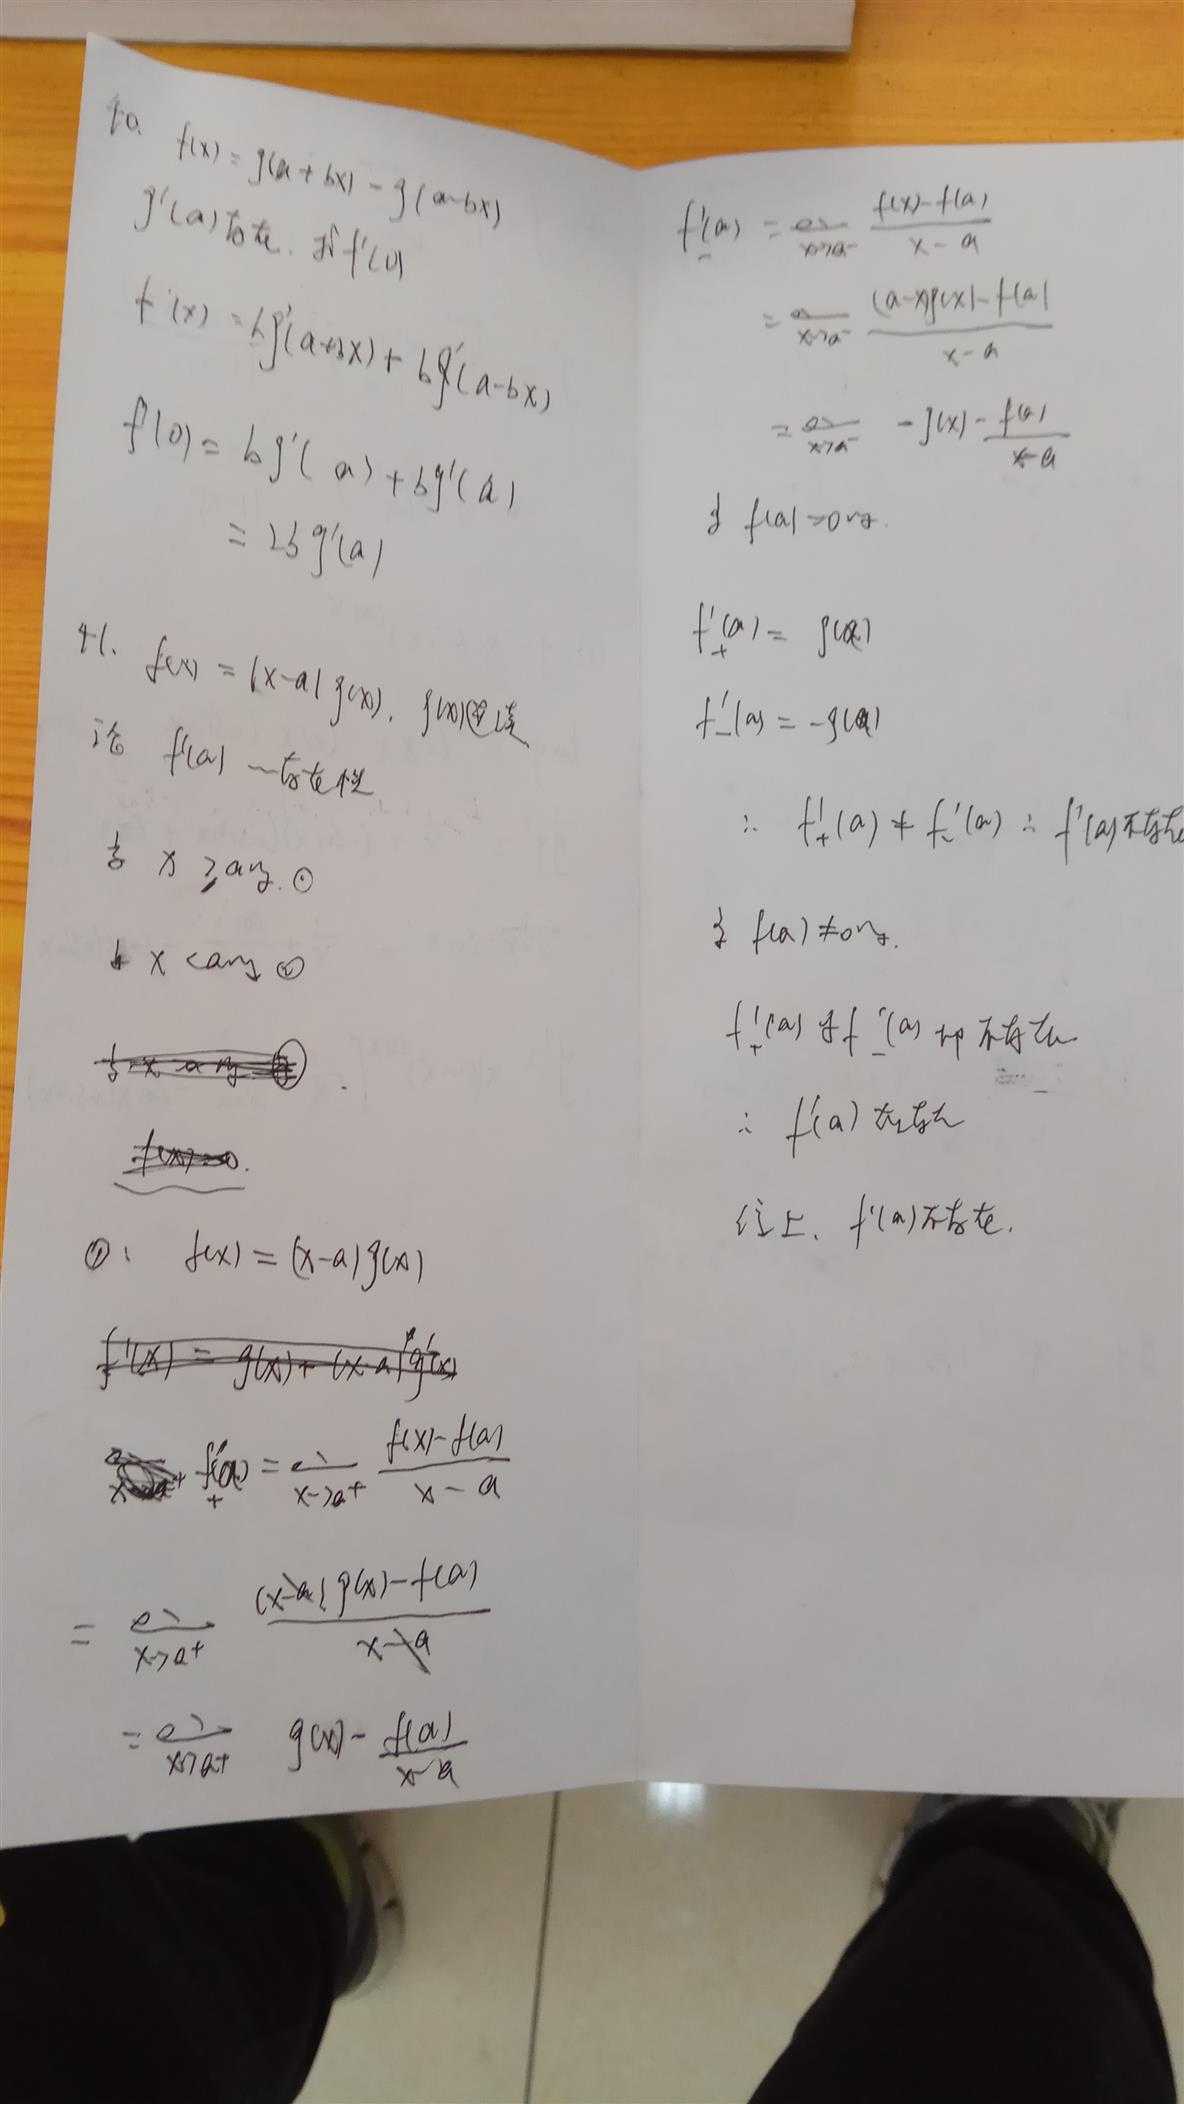 40. f(x) = g(a+bx) - g(a-bx)
g'(a)存在. 求f'(0)
f'(x) = bg'(a+bx) + bg'(a-bx)
f'(0) = bg'(a) + bg'(a)
= 2bg'(a)
41. f(x) = |x-a| g(x). g(x)连续
论 f'(a) 存在性
当 x≥a时. ①
当 x<a时 ②
①: f(x) = (x-a)g(x)
f'₊(a) = lim x->a+ (f(x)-f(a))/(x-a)
= lim x->a+ ((x-a)g(x)-f(a))/(x-a)
= lim x->a+ g(x) - f(a)/(x-a)
f'₋(a) = lim x->a- (f(x)-f(a))/(x-a)
= lim x->a- ((a-x)g(x)-f(a))/(x-a)
= lim x->a- -g(x) - f(a)/(x-a)
当 f(a)=0时.
f'₊(a) = g(a)
f'₋(a) = -g(a)
∴ f'₊(a) ≠ f'₋(a) ∴ f'(a)不存在
当 f(a)≠0时.
f'₊(a) 与 f'₋(a) 均不存在
∴ f'(a) 不存在
综上. f'(a)不存在.